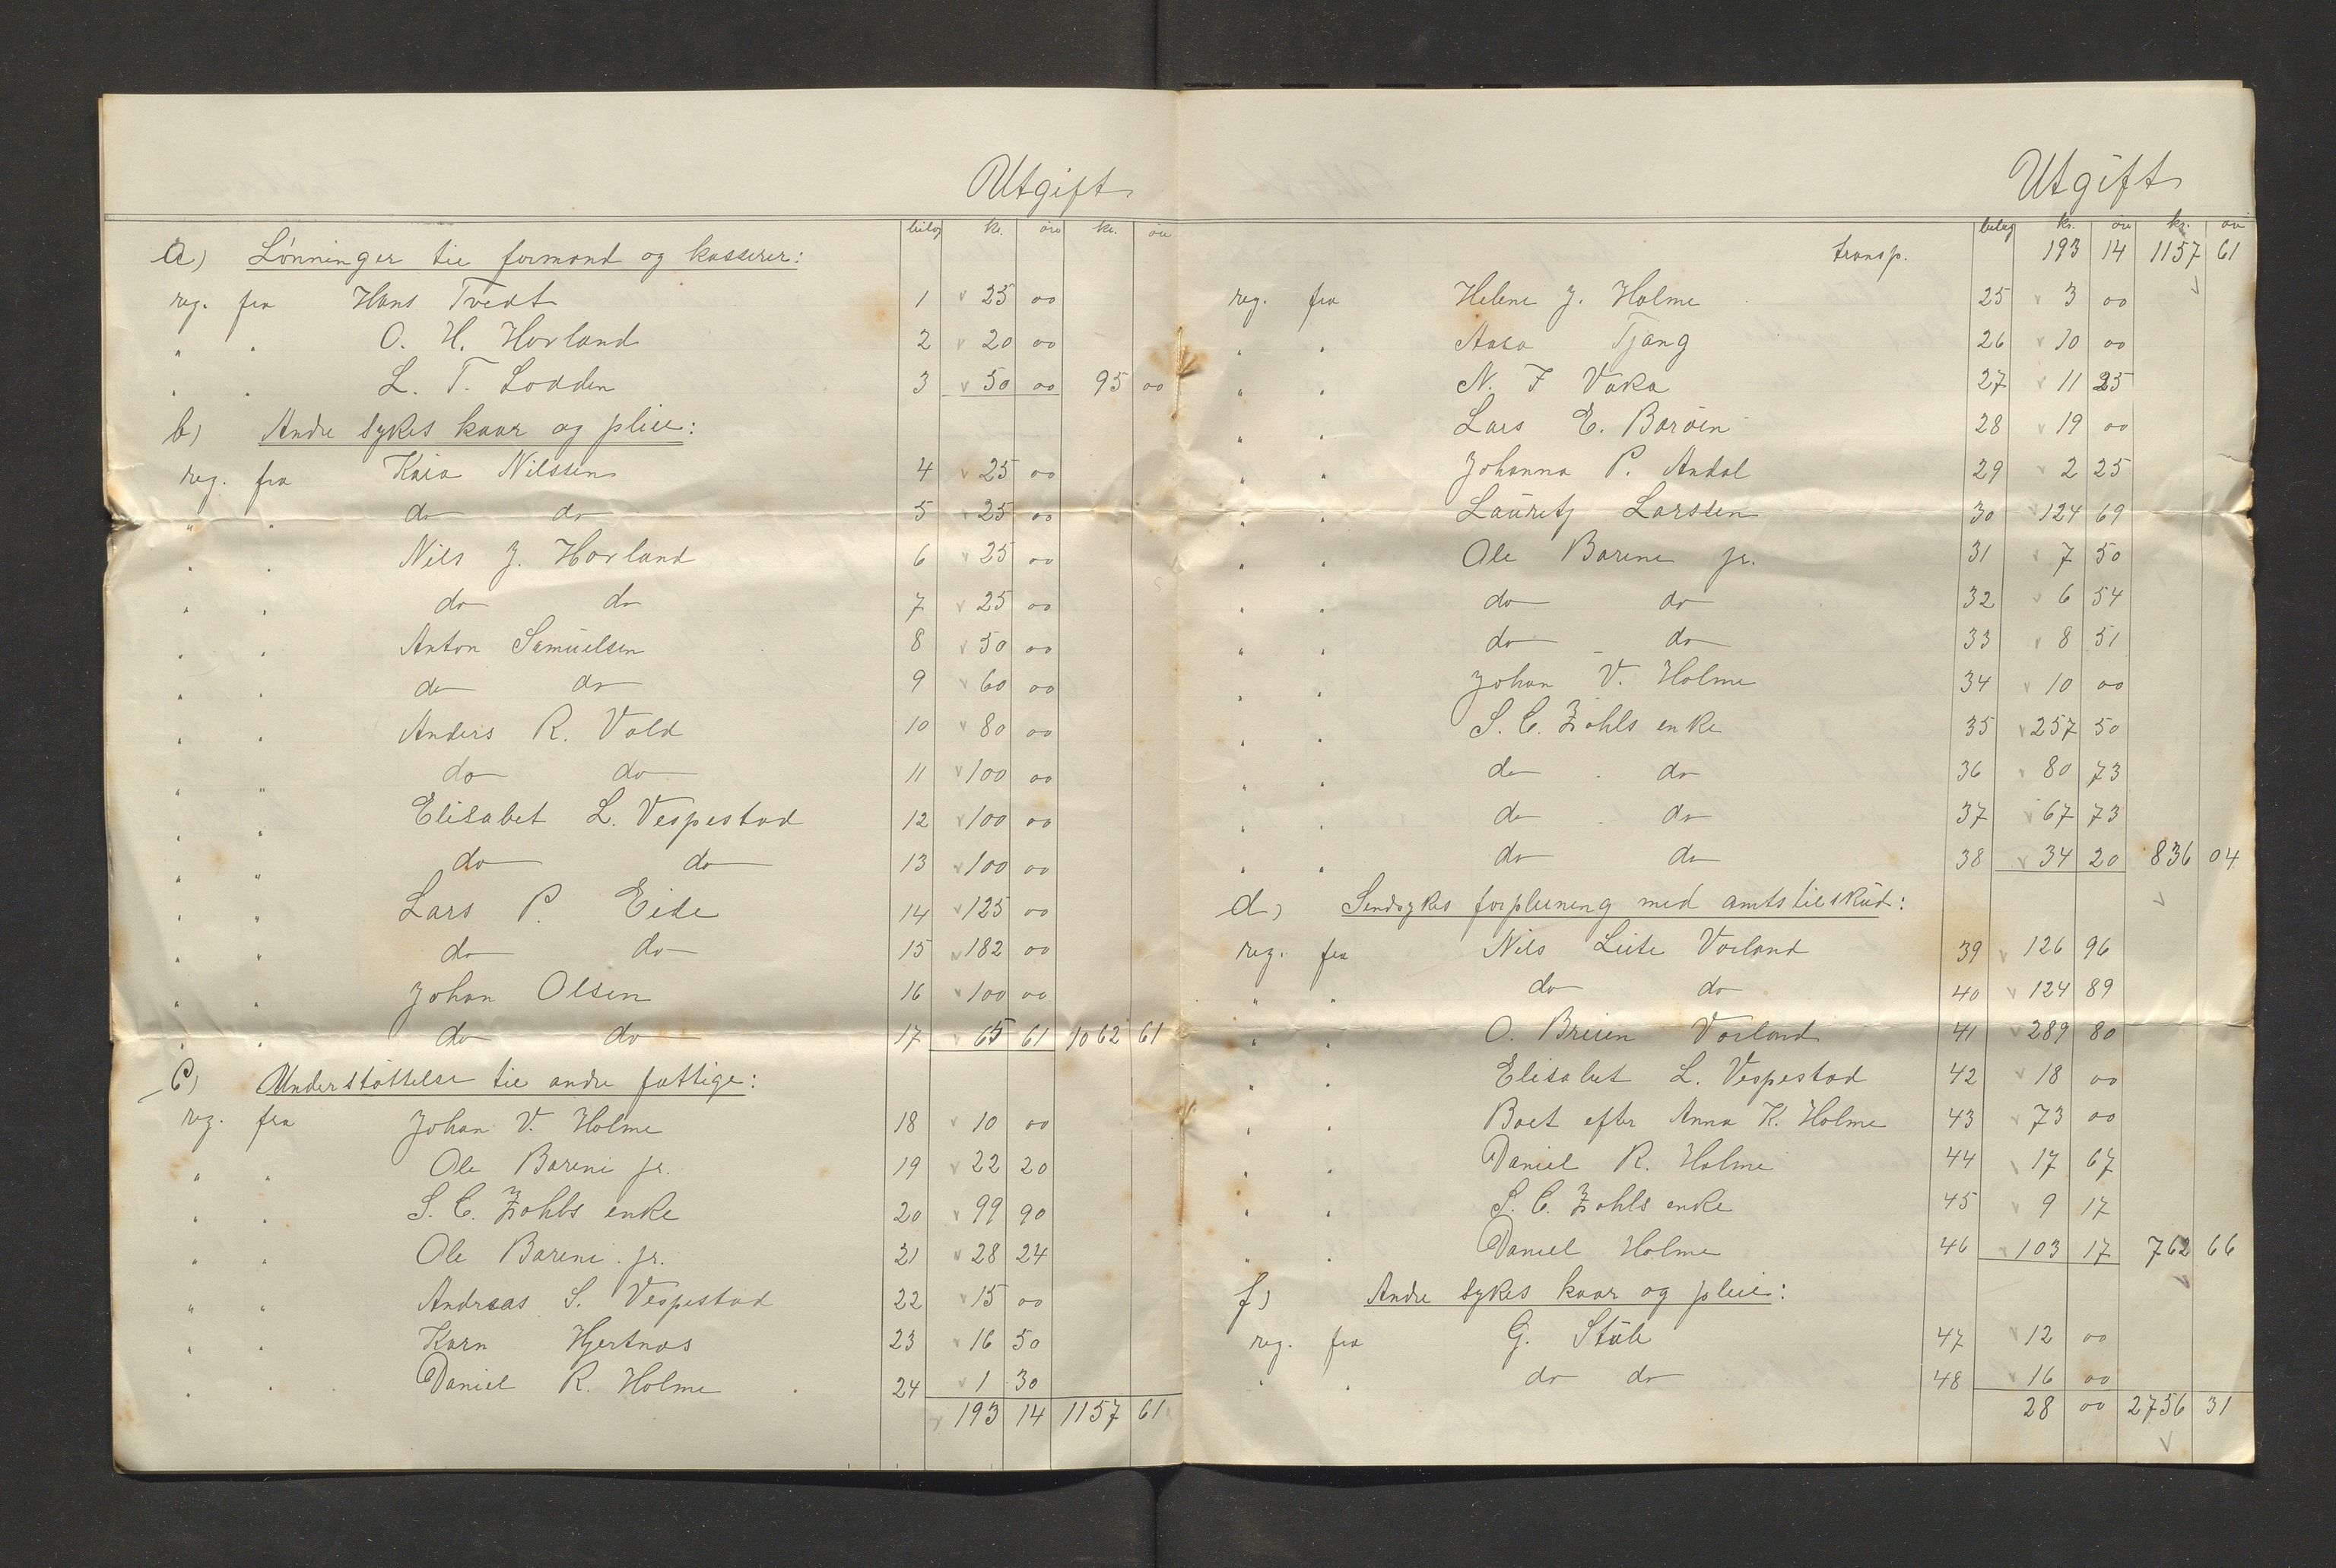 Utgift
bilag kr. øre kr. øre
a) Lønninger til formand og kasserer:
reg. fra Hans Tvedt 1 25 00
" " O. H. Havland 2 20 00
" " L. T. Lodden 3 50 00 95 00
b) Andre sykes kaar og pleie:
reg. fra Kaia Nilssen 4 25 00
" " do do 5 25 00
" " Nils J. Havland 6 25 00
" " do do 7 25 00
" " Anton Samuelsen 8 50 00
" " do do 9 60 00
" " Anders R. Vold 10 80 00
" " do do 11 100 00
" " Elisabet L. Vespestad 12 100 00
" " do do 13 100 00
" " Lars P. Eide 14 125 00
" " do do 15 182 00
" " Johan Olsen 16 100 00
" " do do 17 65 61 1062 61
c) Understøttelse til andre fattige:
reg. fra Johan V. Holme 18 10 00
" " Ole Barene jr. 19 22 20
" " S. C. Zahls enke 20 99 90
" " Ole Barene jr. 21 28 24
" " Andreas S. Vespestad 22 15 00
" " Karn Hjertnes 23 16 50
" " Daniel R. Holme 24 1 30
193 14 1157 61
Utgift
bilag kr. øre kr. øre
transp. 193 14 1157 61
reg. fra Helene J. Holme 25 3 00
" " Aasa Tjong 26 10 00
" " N. F Vaka 27 11 25
" " Lars E. Barøen 28 19 00
" " Johanna P. Andal 29 2 25
" " Lauritz Larssen 30 124 69
" " Ole Barene jr. 31 7 50
" " do do 32 6 54
" " do do 33 8 51
" " Johan V. Holme 34 10 00
" " S. C. Zahls enke 35 257 50
" " do do 36 80 73
" " do do 37 67 73
" " do do 38 34 20 836 04
d) Sindsykes forpleining med amtstilskud:
reg. fra Nils Leite Vorland 39 126 96
" " do do 40 124 89
" " O. Breien Vorland 41 289 80
" " Elisabet L. Vespestad 42 18 00
" " Boet efter Anna K. Holme 43 73 00
" " Daniel R. Holme 44 17 67
" " S. C. Zahls enke 45 9 17
" " Daniel Holme 46 103 17 762 66
f) Andre sykes kaar og pleie:
reg. fra G. Stub 47 12 00
" " do do 48 16 00
28 00 2756 31